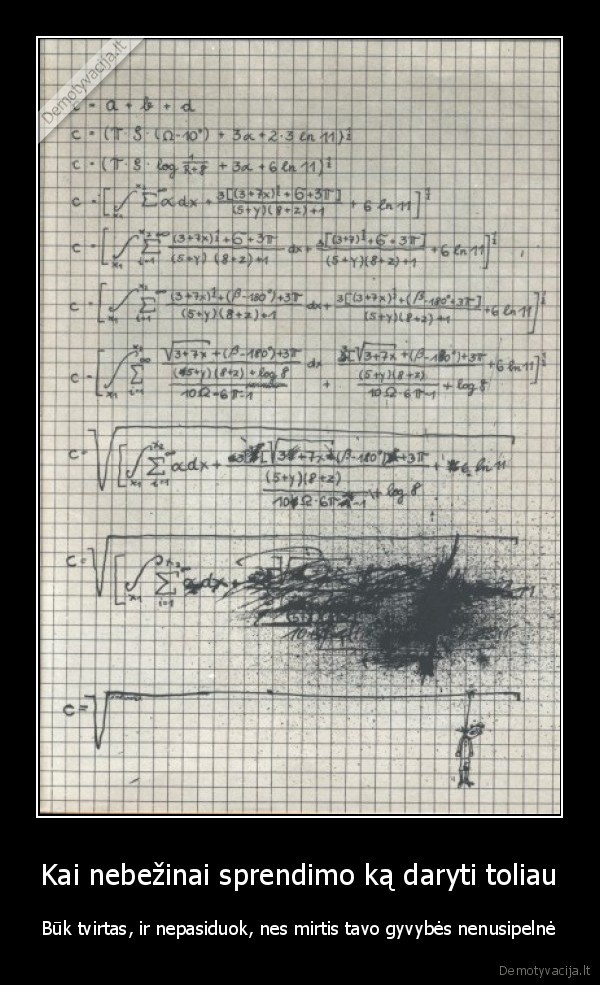 Demotyvacija.lt
c = a + b + d
c = (π · S · (Ω-10°) + 3a + 2·3 ln 11)^½
c = (π · S · log + 3a + 6 ln 11)^½
c = [∫ Σ^∞ α dx + 3[(3+7x)^½ + 6 + 3π] / (5+y)(8+z)+1 + 6 ln 11]^½
c = [∫_{x₁}^{x₂} Σ_{i=1}^∞ (3+7x)^½ + 6 + 3π / (5+y)(8+z)+1 dx + 3[(3+7)^½ + 6 + 3π] / (5+y)(8+z)+1 + 6 ln 11]^½
c = [∫_{x₁}^{x₂} Σ_{i=1}^∞ (3+7x)^½ + (β-180°) + 3π / (5+y)(8+z)+1 dx + 3[(3+7x)^½ + (β-180° + 3π] / (5+y)(8+z)+1 + 6 ln 11]^½
c = [∫_{x₁}^{x₂} Σ_{i=1}^∞ √3+7x + (β-180°) + 3π / (5+y)(8+z) + log 8 / 10Ω - 6π-1 dx + 3[√3+7x + (β-180°) + 3π / (5+y)(8+z) / 10Ω · 6π-1 + log 8 + 6 ln 11]^½
c = √[∫_{x₁}^{x₂} Σ_{i=1}^∞ α dx + √3+7x + (β-180°) + 3π / (5+y)(8+z) / 10Ω · 6π-1 + log 8 + 6 ln 11
c = √[∫_{x₁}^{x₂} Σ_{i=1}^∞ α dx +
c = √
Kai nebežinai sprendimo ką daryti toliau
Būk tvirtas, ir nepasiduok, nes mirtis tavo gyvybės nenusipelnė
Demotyvacija.lt